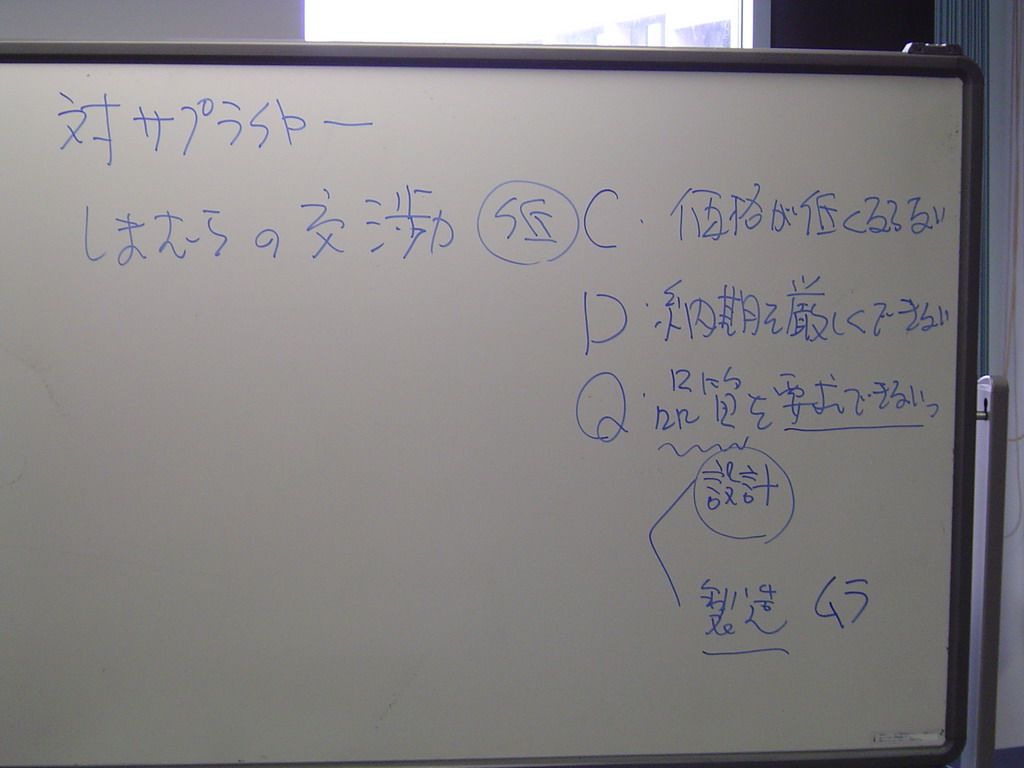 対サプライヤー
しまむらの交渉力 低 C・価格が低くならない
D・納期を厳しくできない
Q・品質を要求できない。
設計
製造 ムラ